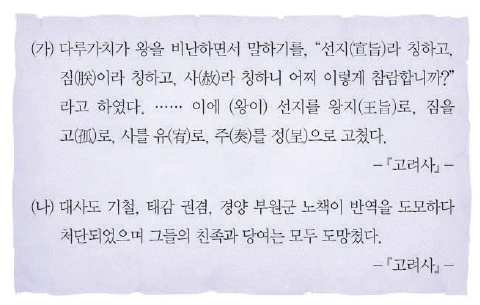 (가) 다루가치가 왕을 비난하면서 말하기를, “선지(宣旨)라 칭하고,
짐(朕)이라 칭하고, 사(赦)라 칭하니 어찌 이렇게 참람합니까?”
라고 하였다. …… 이에 (왕이) 선지를 왕지(王旨)로, 짐을
고(孤)로, 사를 유(宥)로, 주(奏)를 정(呈)으로 고쳤다.
-『고려사』-
(나) 대사도 기철, 태감 권겸, 경양 부원군 노책이 반역을 도모하다
처단되었으며 그들의 친족과 당여는 모두 도망쳤다.
-『고려사』-